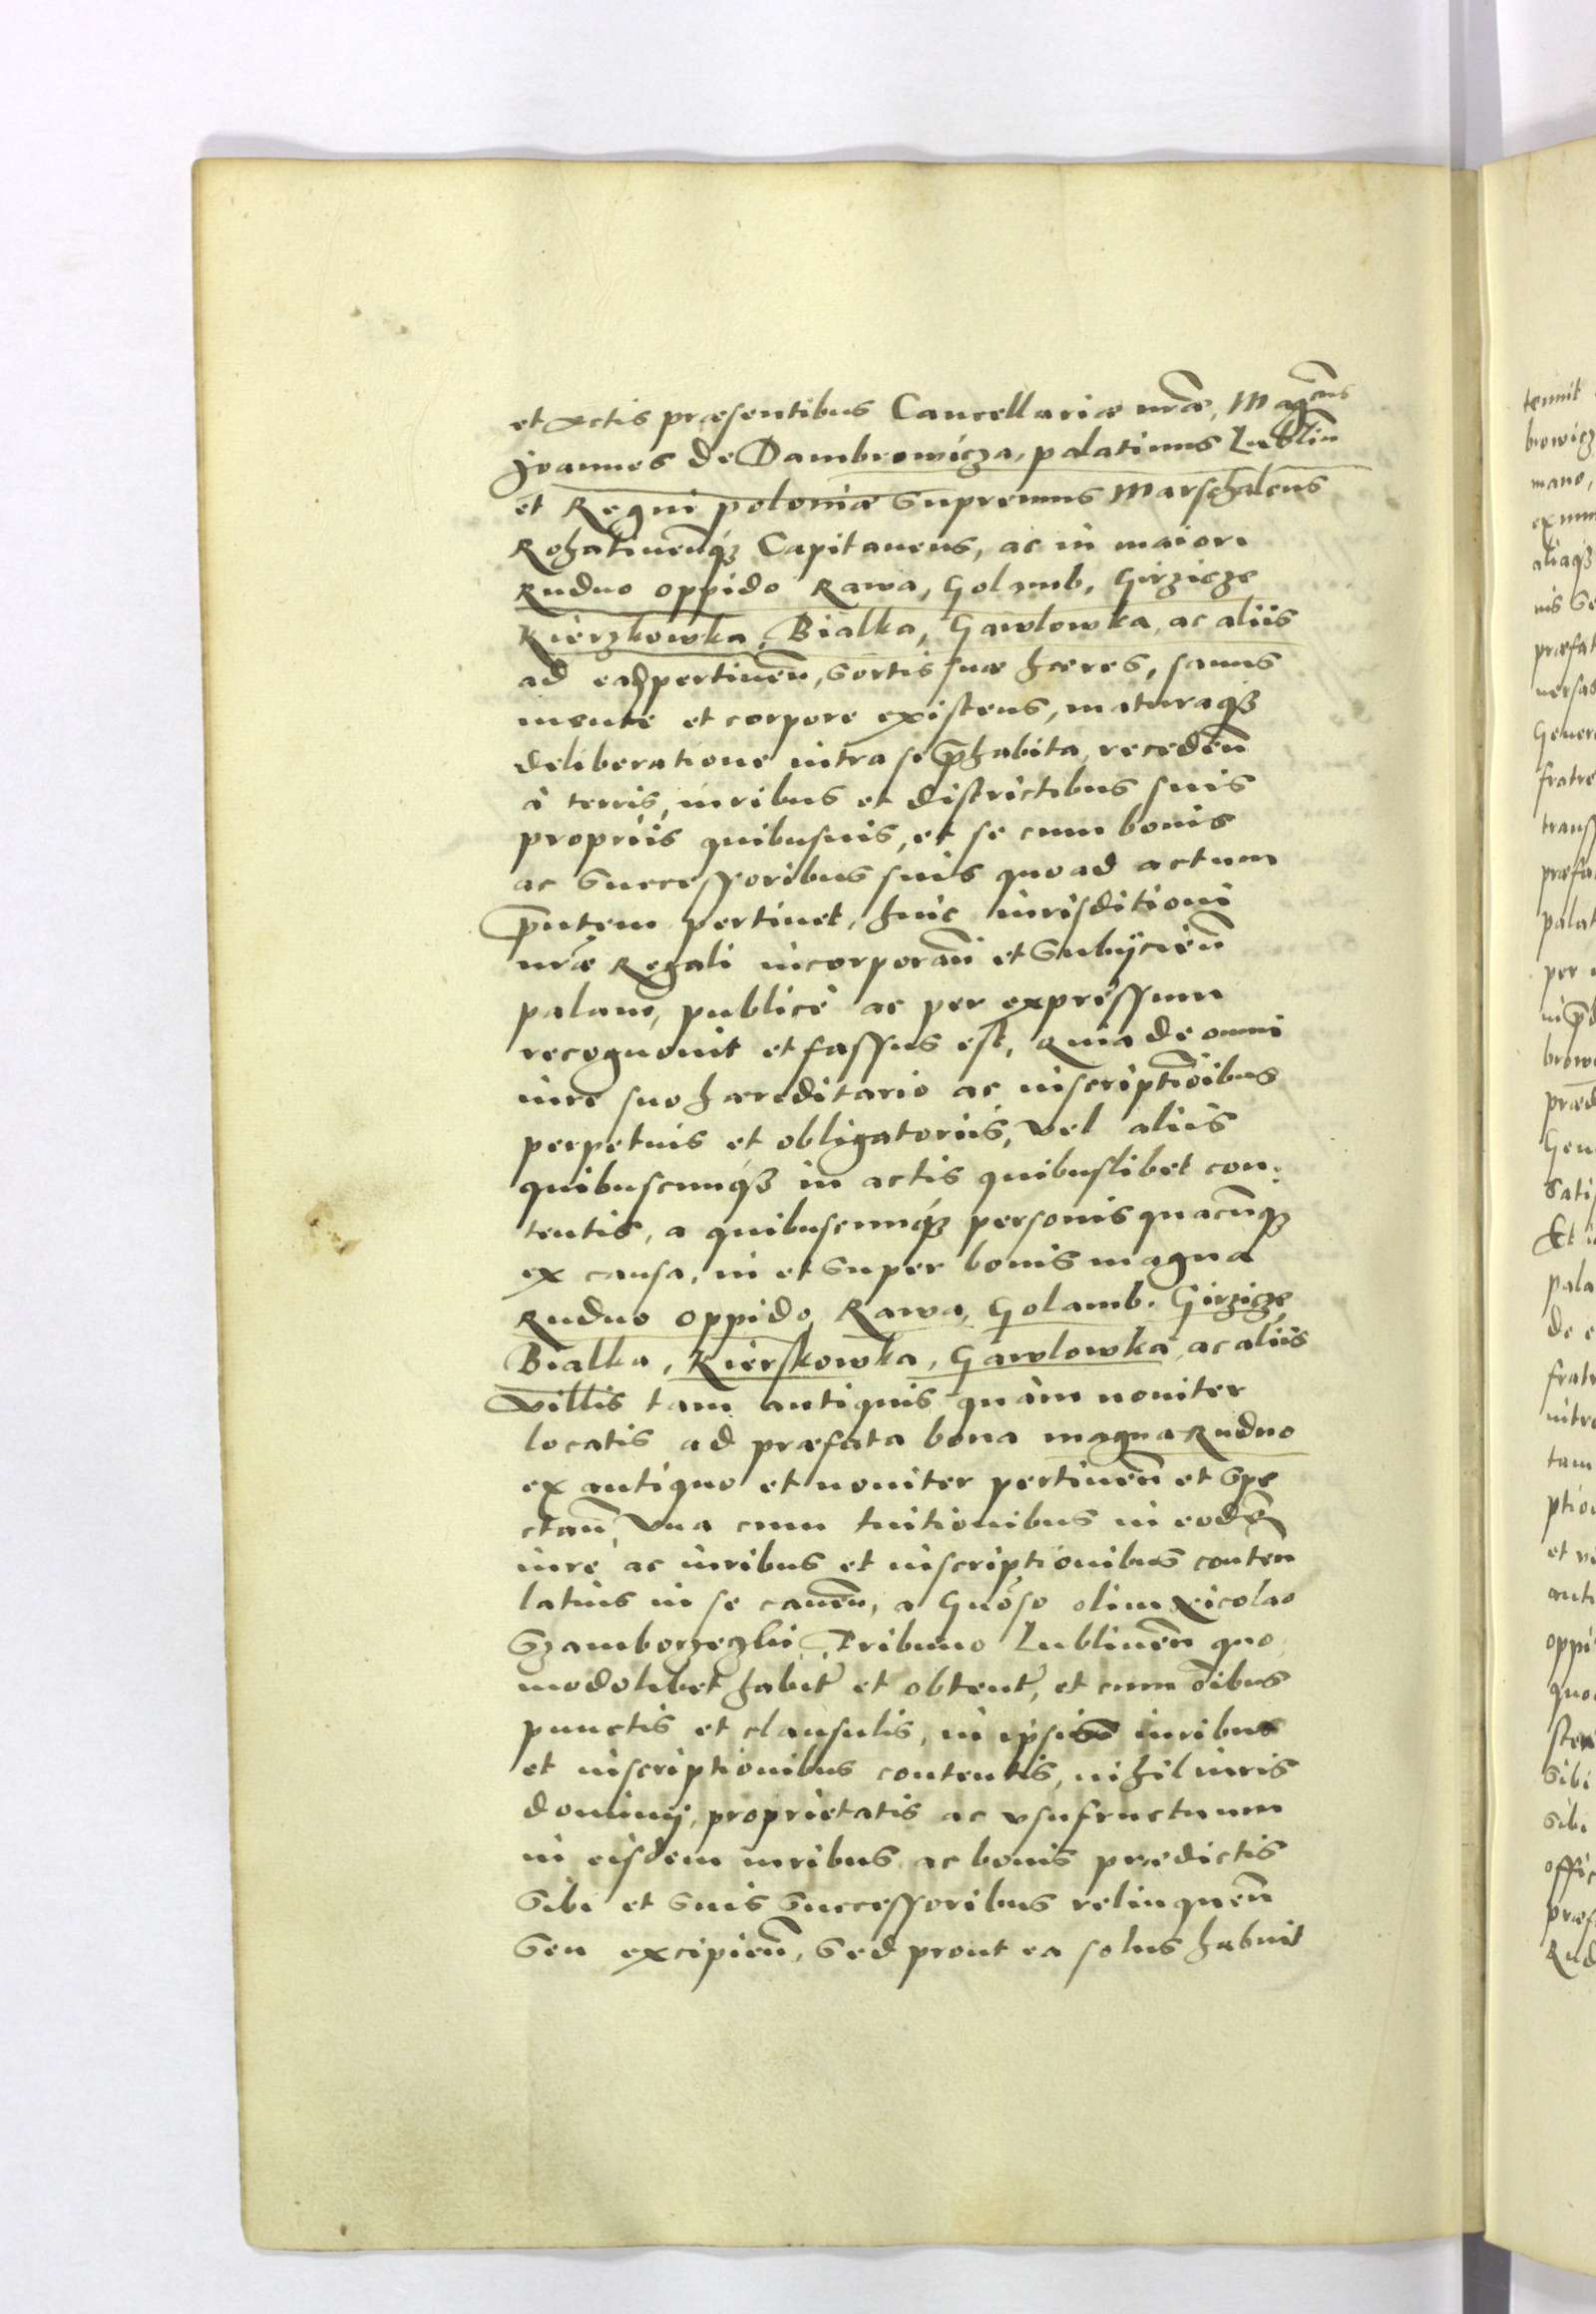 et Actis præsentibus Cancellariæ nræ, Magcus
Joannes de Dambrowicza, palatinus Lublin
et Regni poloniæ Supremus Marschalcus
Rohatinenqȝ Capitaneus, ac in maiori
Rudno oppido Rawa, Golamb, Girzicze
Kierzkowka, Bialka, Gawlowka, ac aliis
ad ea pertinen, Sortis suæ hæres, sanus
mente et corpore existens, maturaqȝ
deliberatione intra se præhabita, receden
à terris, iuribus et districtibus suis
propriis quibusuis, et se cum bonis
ac Successoribus suis quo ad actum
pntem pertinet, huic iurisditioni
nræ Regali incorporan et Subÿcien
palam, publicè ac per expressum
recognouit et fassus est, Quia de omni
iure suo hæreditario ac inscriptioibus
perpetuis et obligatoriis, vel aliis
quibuscunqȝ in actis quibuslibet con:
tentis, a quibuscunqȝ personis quacunqȝ
ex causa, in et Super bonis magna
Rudno oppido Rawa, Golamb. Girzicze
Bialka, Kierskowka, Gawlowka, ac aliis
Villis tam antiquis quàm nouiter
locatis ad præfata bona magna Rudno
ex antiquo et nouiter pertinen et Spe
ctan, Vna cum tuitionibus in eodem
iure, ac iuribus et inscriptionibus conten
latius in se cauen, a Gnoso olim Nicolao
Szamborzeczki, Tribuno Lublinen quo
modolibet habit et obtent, et cum oibus
punctis et clausulis, in ipsis iuribus
et inscriptionibus contentis, nihil iuris
dominÿ, proprietatis ac vsufructuum
in eisdem iuribus ac bonis prædictis
Sibi et Suis Successoribus relinquen
Seu excipien, Sed prout ea solus habuit